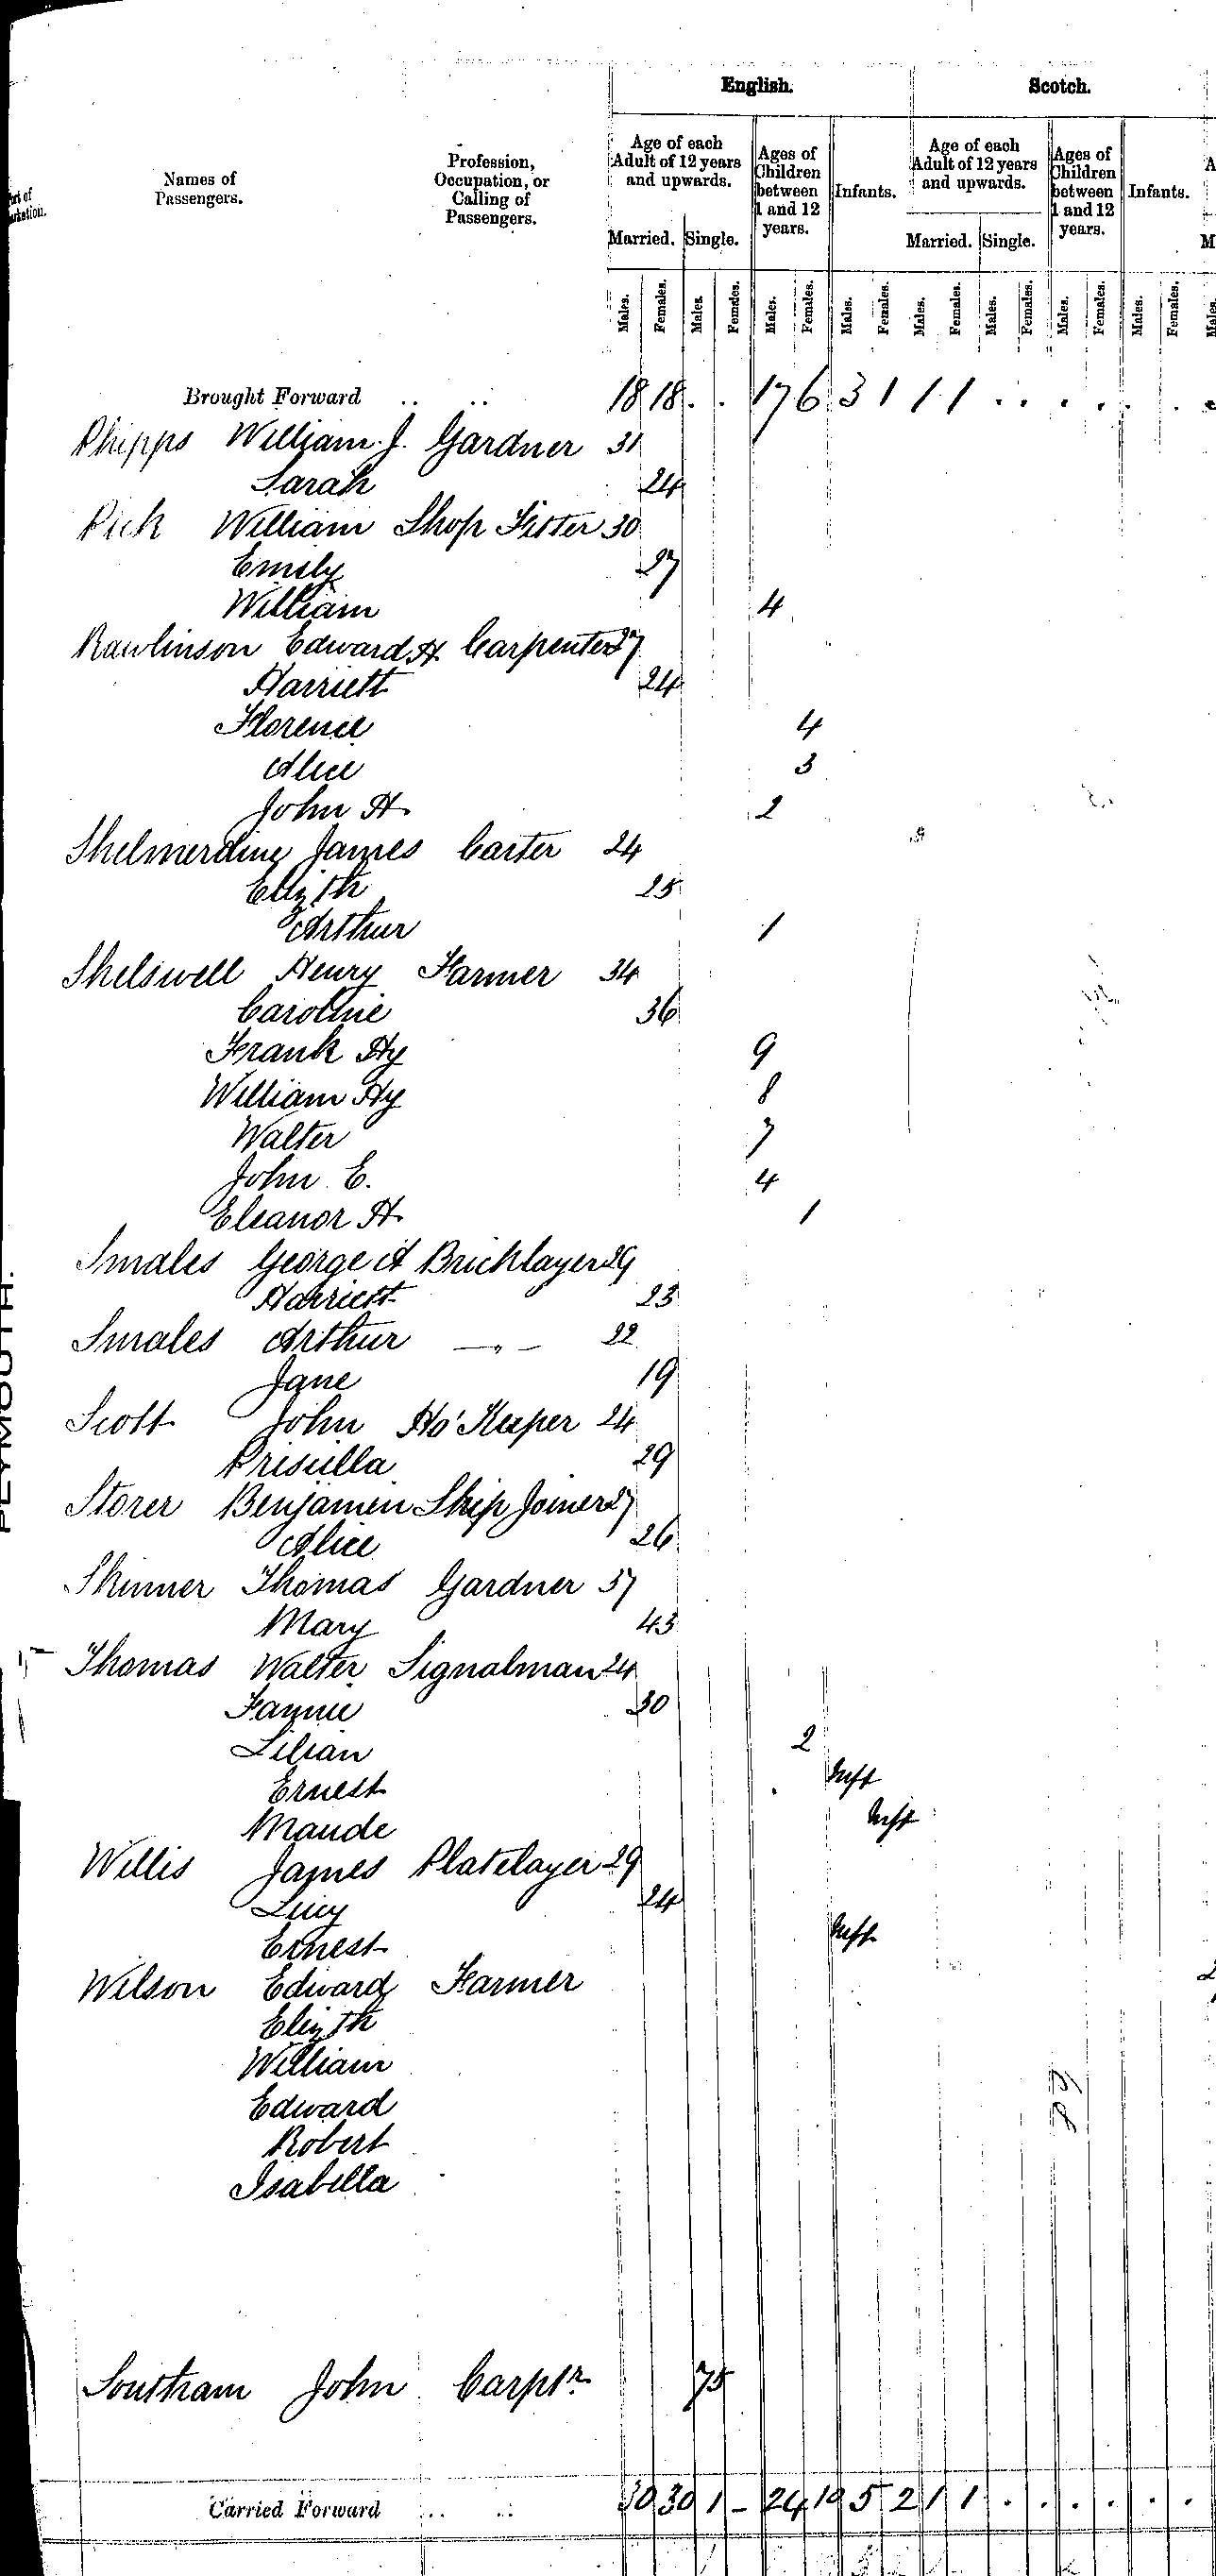 English. Scotch.
Names of Passengers. Profession, Occupation, or Calling of Passengers. Age of each Adult of 12 years and upwards. Ages of Children between 1 and 12 years. Infants. Age of each Adult of 12 years and upwards. Ages of Children between 1 and 12 years. Infants.
Married. Single. Married. Single.
Males. Females. Males. Females. Males. Females. Males. Females. Males. Females. Males. Females. Males. Females. Males. Females.
Brought Forward .. .. 18 18 . . 17 6 3 1 1 1 . . . . . .
Phipps William J. Gardner 31
Sarah 24
William Shop Fitter 30
Emily 27
William 4
Rawlinson Edward H. Carpenter 27
Harriett 24
Florence 4
Alice 3
John H. 2
Shelmerdine James Carter 24
Elizth 25
Arthur 1
Shelswell Henry Farmer 34
Caroline 36
Frank Hy 9
William Hy 8
Walter 7
John E. 4
Eleanor H. 1
Smales George A Bricklayer 29
Harriett 23
Smales Arthur —"— 22
Jane 19
Scott John Ho' Keeper 24
Priscilla 29
Storer Benjamin Ship Joiner 27
Alice 26
Skinner Thomas Gardner 37
Mary 43
Thomas Walter Signalman 24
Fannie 30
Lilian 2
Ernest Inft
Maude Inft
Willis James Platelayer 29
Lucy 24
Ernest Inft
Wilson Edward Farmer
Elizth
William
Edward
Robert
Isabella
PLYMOUTH.
Southam John Carptr. 75
Carried Forward .. .. 30 30 1 - 24 10 5 2 1 1 . . . . . .